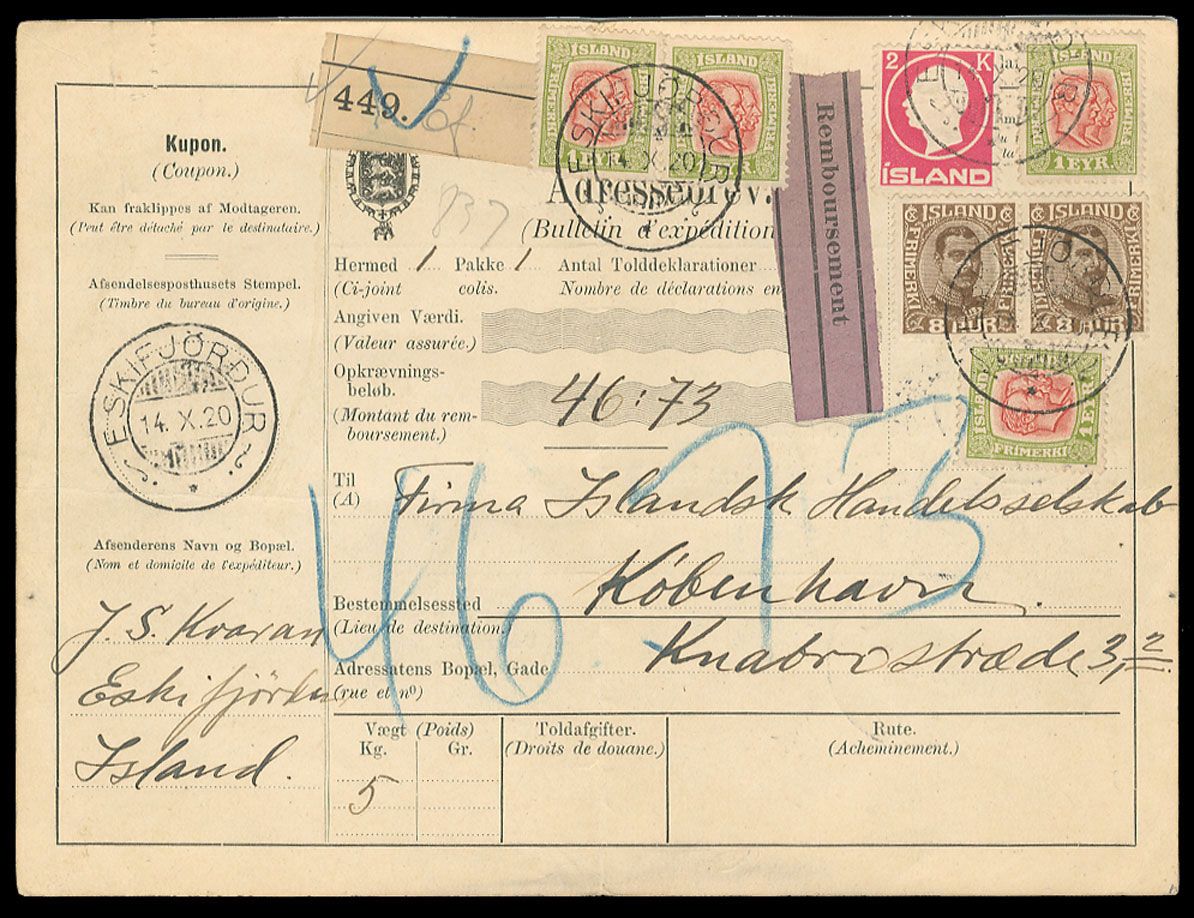 Kupon.
(Coupon.)
Kan fraklippes af Modtageren.
(Peut être détaché par le destinataire.)
Afsendelsesposthusets Stempel.
(Timbre du bureau d'origine.)
ESKIFJÖRÐUR
14. X. 20
Afsenderens Navn og Bopæl.
(Nom et domicile de l'expéditeur.)
J. S. Kvaran
Eskifjörður
Island.
449.
ÍSLAND
ÍSLAND
1 EYR
ESKIFJÖRÐUR
14. X. 20
837
Adressebrev.
(Bulletin d'expédition
Remboursement
2 K
ÍSLAND
1 EYR
ISLAND
ISLAND
FRÍMERKI
8 AUR
8 AUR
FRÍMERKI
1 EYR
Hermed 1 Pakke 1 Antal Tolddeklarationer
(Ci-joint colis. Nombre de déclarations en
Angiven Værdi.
(Valeur assurée.)
Opkrævnings-
beløb.
(Montant du rem-
boursement.)
46:73
46.73
Til
(A)
Firma Islandsk Handelsselskab
København.
Bestemmelsessted
(Lieu de destination.
Knabrostræde 3,2
Adressatens Bopæl, Gade
(rue et nº)
Vægt (Poids)
Kg. Gr.
5
Toldafgifter.
(Droits de douane.)
Rute.
(Acheminement.)